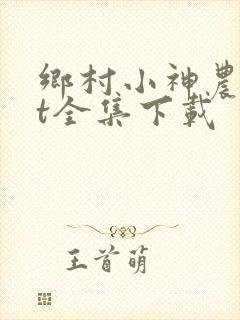 鄉村小神農
t全集下載
王首萌